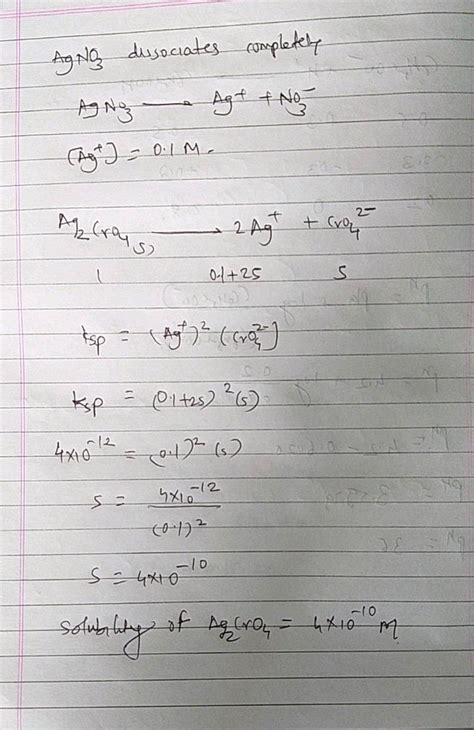 AgNO3 dissociates completely
AgNO3 ⟶ Ag+ + NO3−
(Ag+) = 0.1 M.
Ag2CrO4(s) ⟶ 2Ag+ + CrO4^2−
1 0.1+2S S
Ksp = (Ag+)^2 (CrO4^2−]
Ksp = (0.1+2s)^2 (s)
4×10^−12 = (0.1)^2 (s)
s = 4×10^−12 / (0.1)^2
S = 4×10^−10
Solubility of Ag2CrO4 = 4×10^−10 M